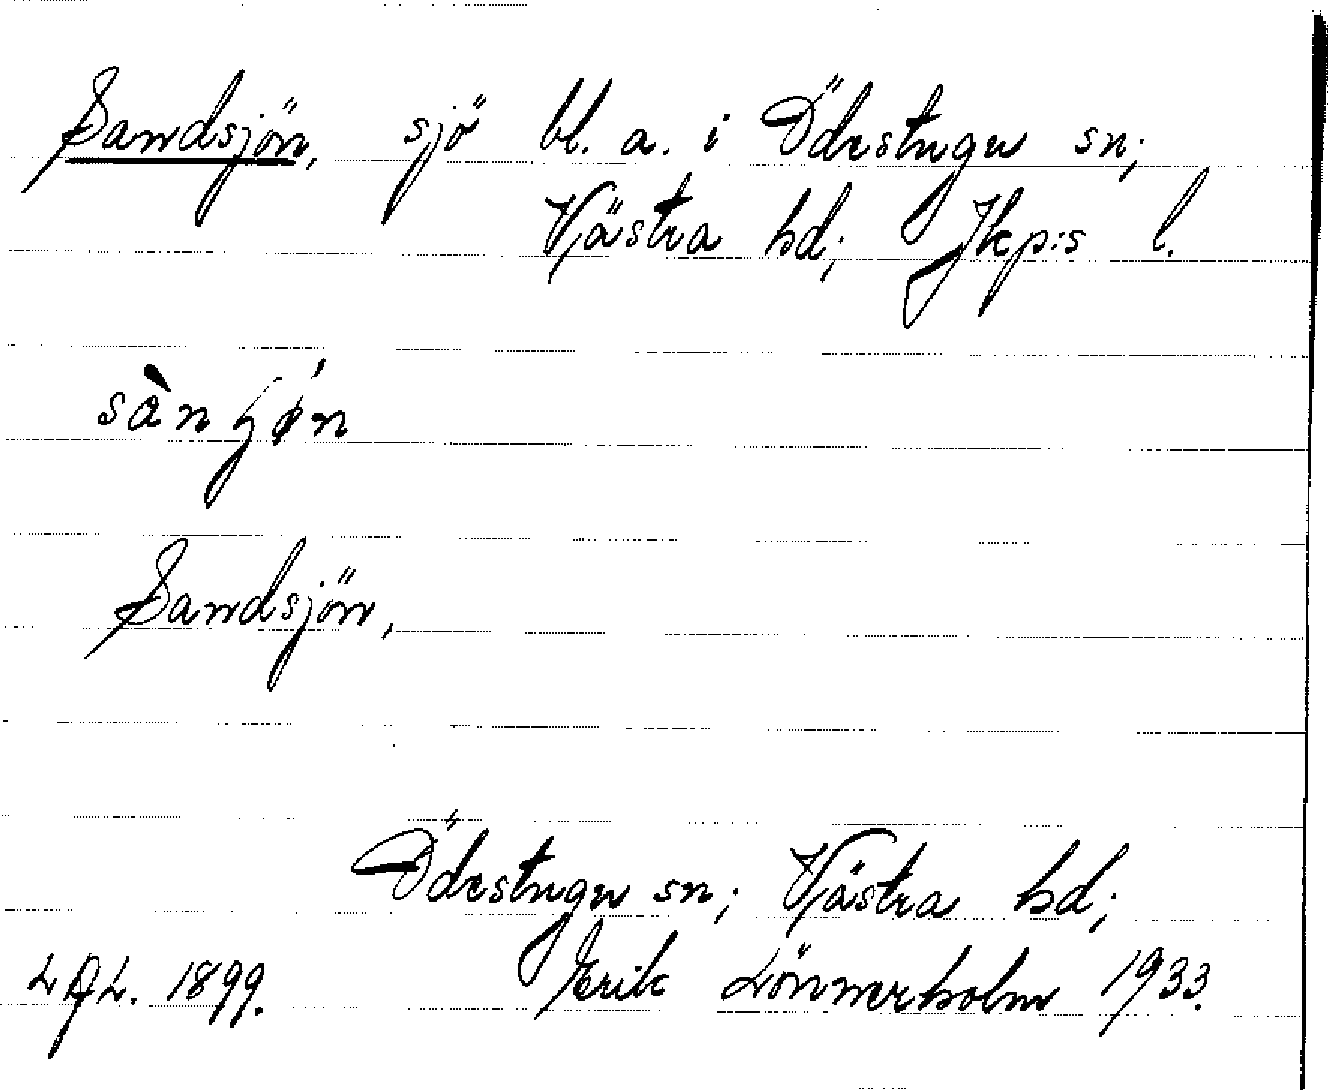 Sandsjön, sjö bl. a. i Ödestugu sn;
Västra hd; Jkp:s l.
Sandsjön,
Ödestugu sn; Västra hd;
1899. Erik Lönnerholm 1933.